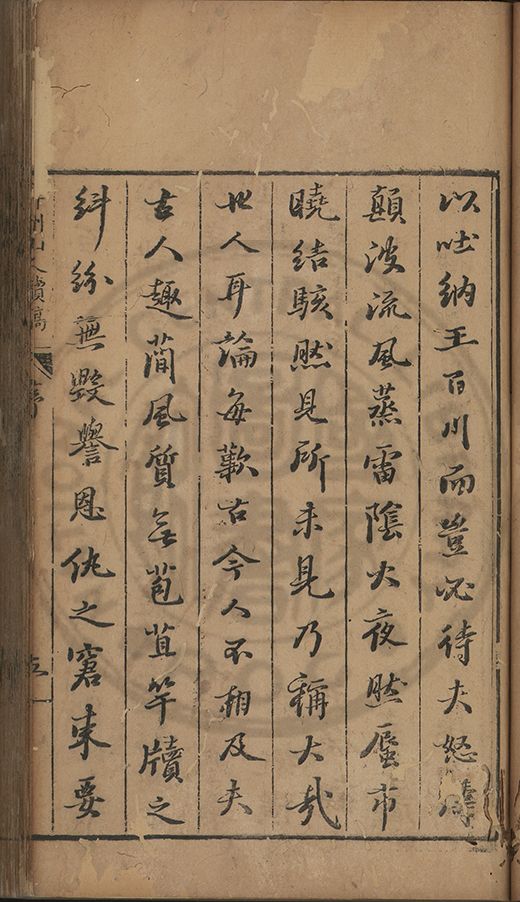 以吐納王百川而豈必待夫怒
顛波流風蒸雷陰火夜然蜃市
曉結駭然見所未見乃稱大哉
世人耳論每歎古今人不相及夫
古人趣蕳風質無苞苴竿牘之
糾紛無毀譽恩仇之窘束要
州山人續稿